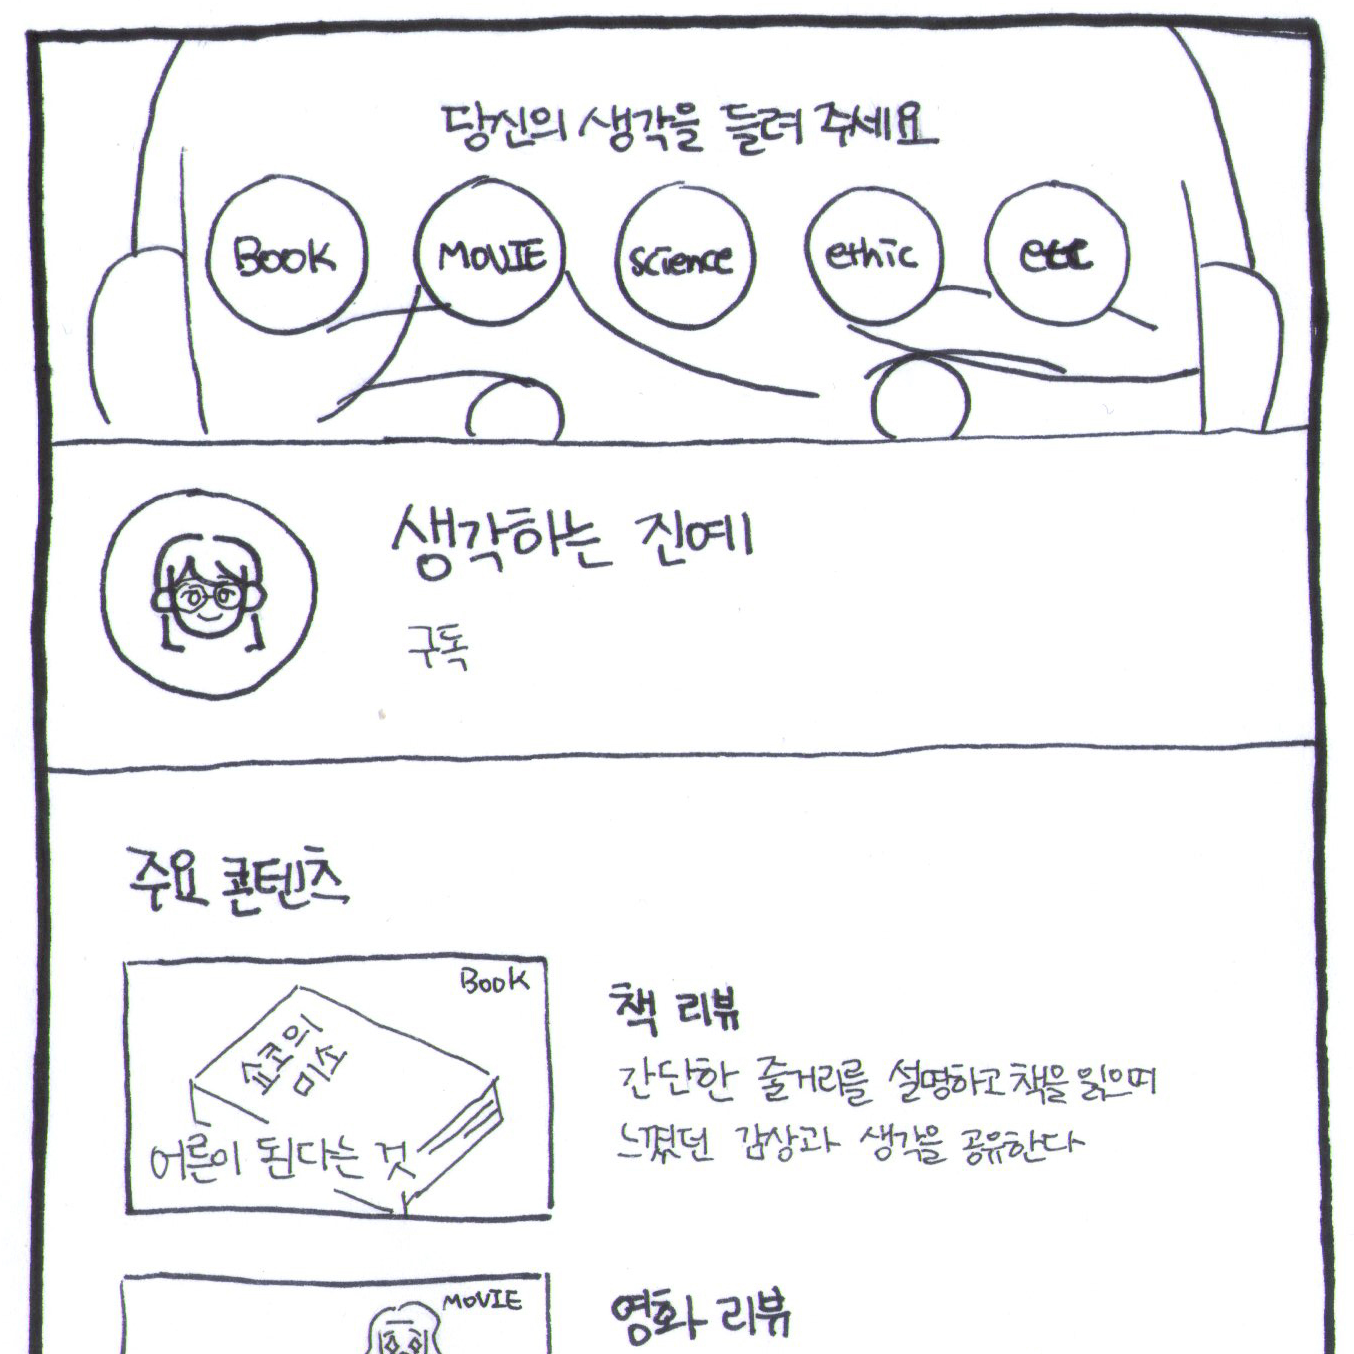 당신의 생각을 들려 주세요
BOOK MOVIE science ethic etc
생각하는 진예
구독
주요 콘텐츠
BOOK
쇼코의
미소
어른이 된다는 것
책 리뷰
간단한 줄거리를 설명하고 책을 읽으며
느꼈던 감상과 생각을 공유한다
MOVIE
영화 리뷰